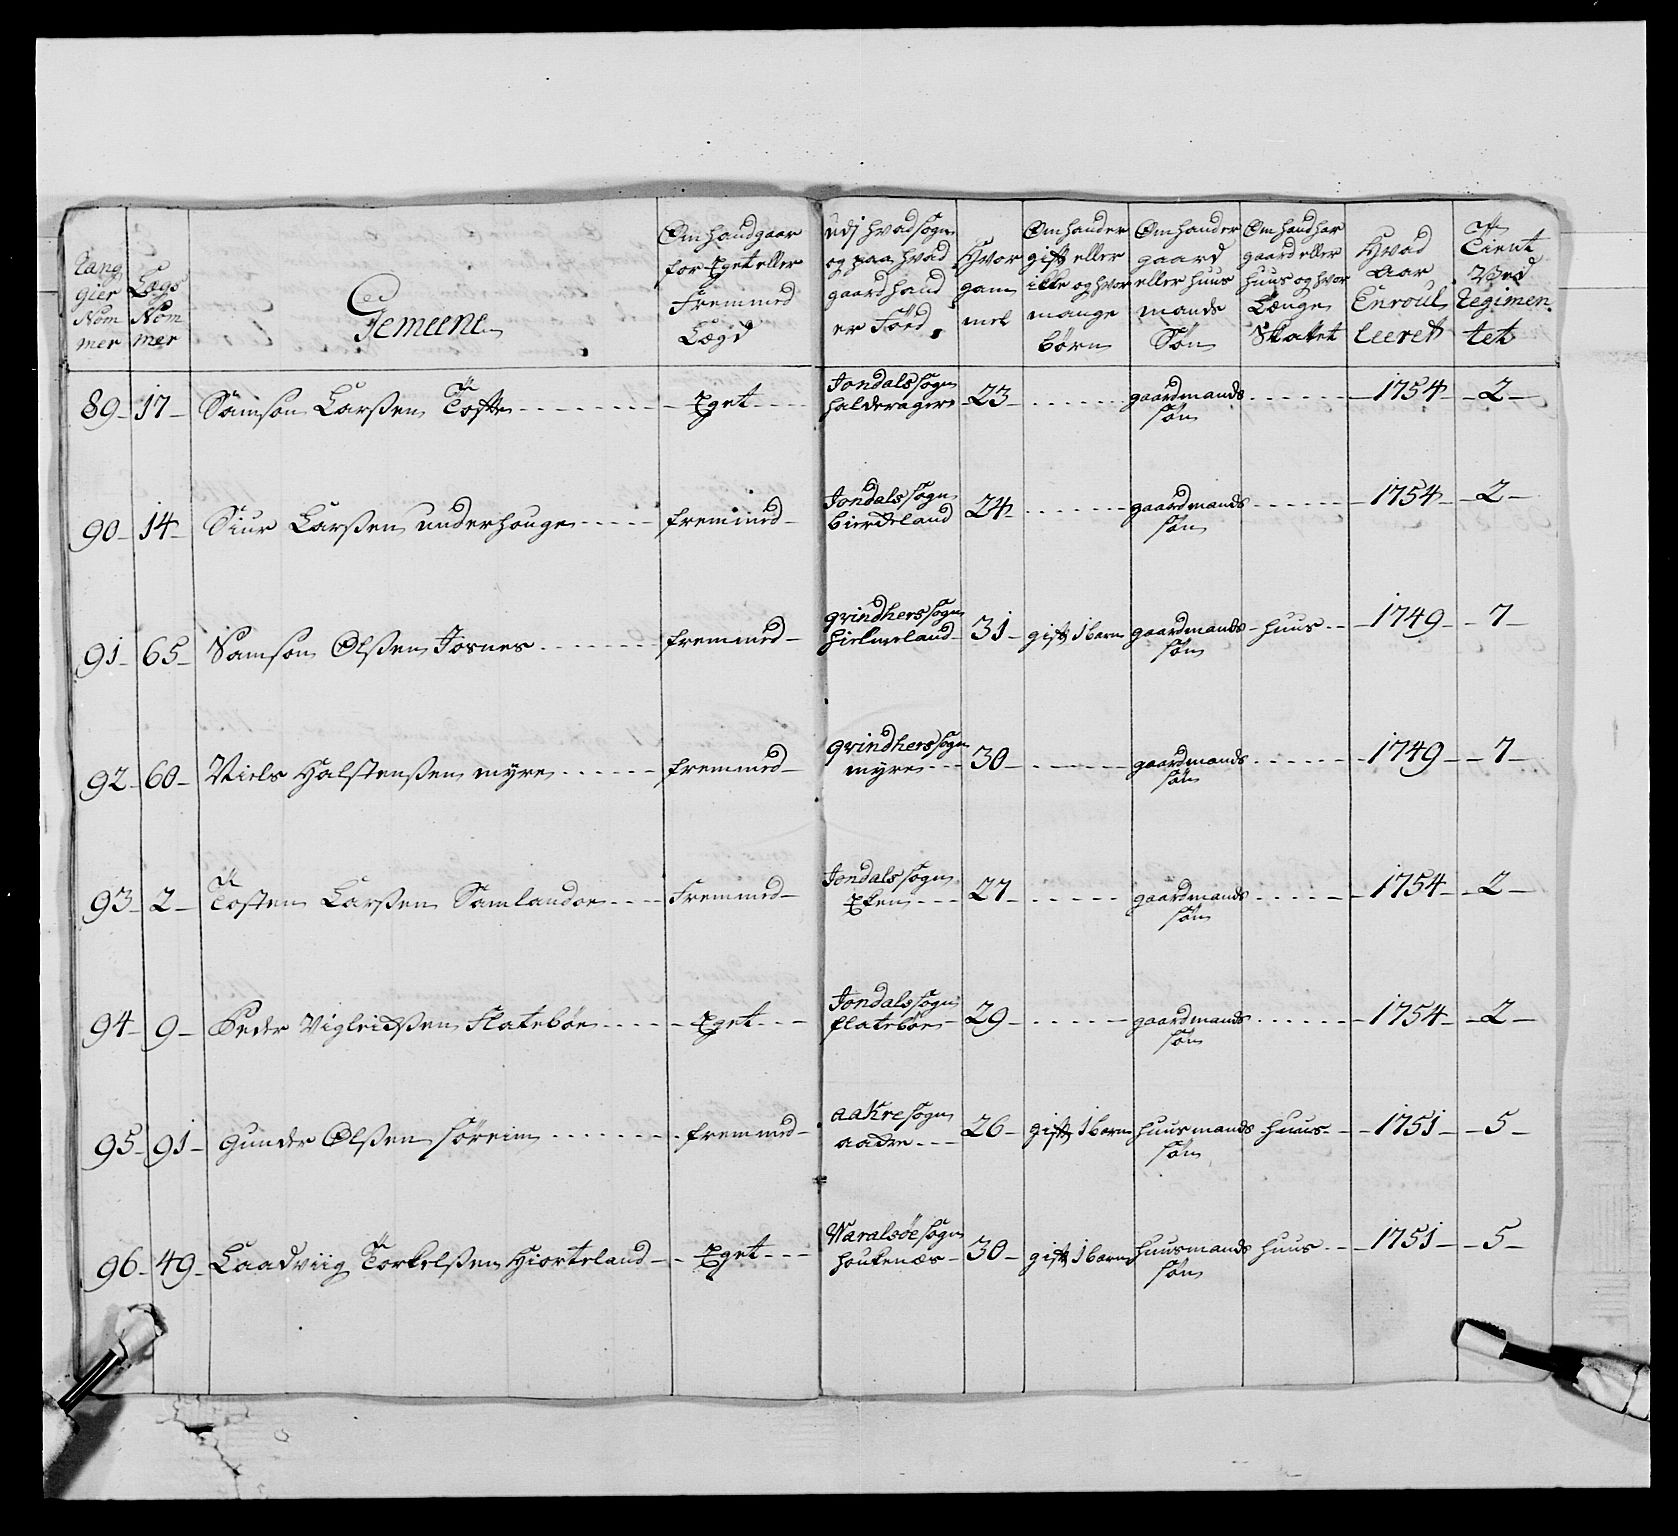 Rang
gier
Nom
mer
Lægs
Nom
mer
Gemeene
Om hand gaar
for Eget eller
Fremmed
Lægd
Udj hvad sogn
og paa hvad
gaard hand
er Föed
Hvor
gam
mel
Om hand er
gift eller
ikke og hvor
mange
börn
Om hand er
gaard
eller huus
mands
Søn
Om hand har
gaard eller
huus og hvor
Længe
Skatet
Hvad
Aar
Enroul
leeret
Tient
Ved
Regimen
tet
89 17 Samson Larßen Tofte Eget Jondals sogn halderager 23 gaardmands søn 1754 2
90 14 Siur Larßen underhouge fremmed Jondals sogn bierkeland 24 gaardmands søn 1754 2
91 65 Samson Olßen Fosnes fremmed qvindhers sogn hielmeland 31 gift 1 barn gaardmands søn huus 1749 7
92 60 Niels Halstenßen myre fremmed qvindhers sogn myre 30 gaardmands søn 1749 7
93 2 Tosten Larßen Samlandoe Fremmed Jondals sogn Eken 27 gaardmands søn 1754 2
94 9 Peder Vigleidßen Flatebøe Eget Jondals sogn flatebøe 29 gaardmands søn 1754 2
95 91 Gunder Olßen søreim fremmed aakre sogn aakre 26 gift 1 barn huusmands søn huus 1751 5
96 49 Laadviig Torkelßen Hiorteland Eget Varalsöe sogn houkenæs 30 gift 1 barn huusmands søn huus 1751 5